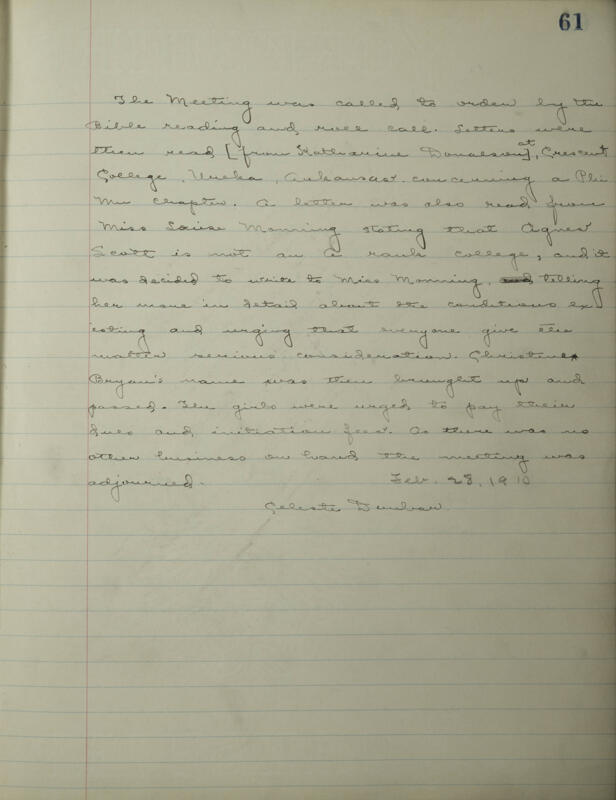 61
The Meeting was called to order by the
Bible reading and roll call. Letters were
then read [from Katharine Donalson] at, Crescent
College, Ureka, Arkansas concerning a Phi
Mu chapter. A letter was also read from
Miss Louise Monning stating that Agnes
Scott is not an A rank college, and it
was decided to write to Miss Monning, and telling
her more in detail about the conditions ex
isting and urging that everyone give the
matter serious consideration. Christine
Bryan's name was then brought up and
passed. The girls were urged to pay their
dues and initiation fees. As there was no
other business on hand the meeting was
adjourned. Feb. 28, 1910
Celeste Dunbar